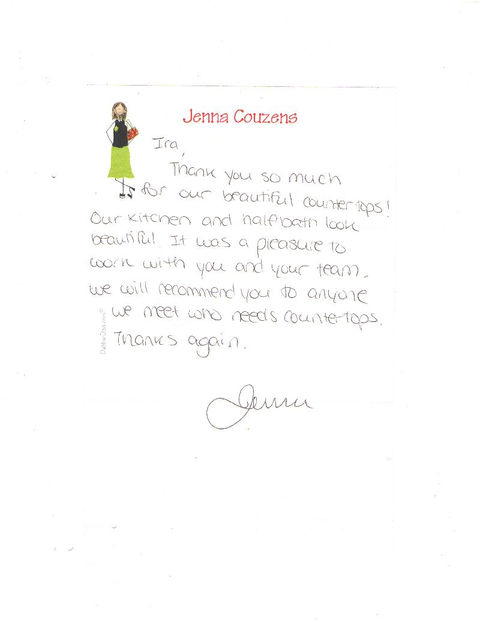 Jenna Couzens
Ira,
Thank you so much
for our beautiful countertops!
Our kitchen and half bath look
beautiful! It was a pleasure to
work with you and your team.
we will recommend you to anyone
we meet who needs countertops.
Thanks again.
Jenna